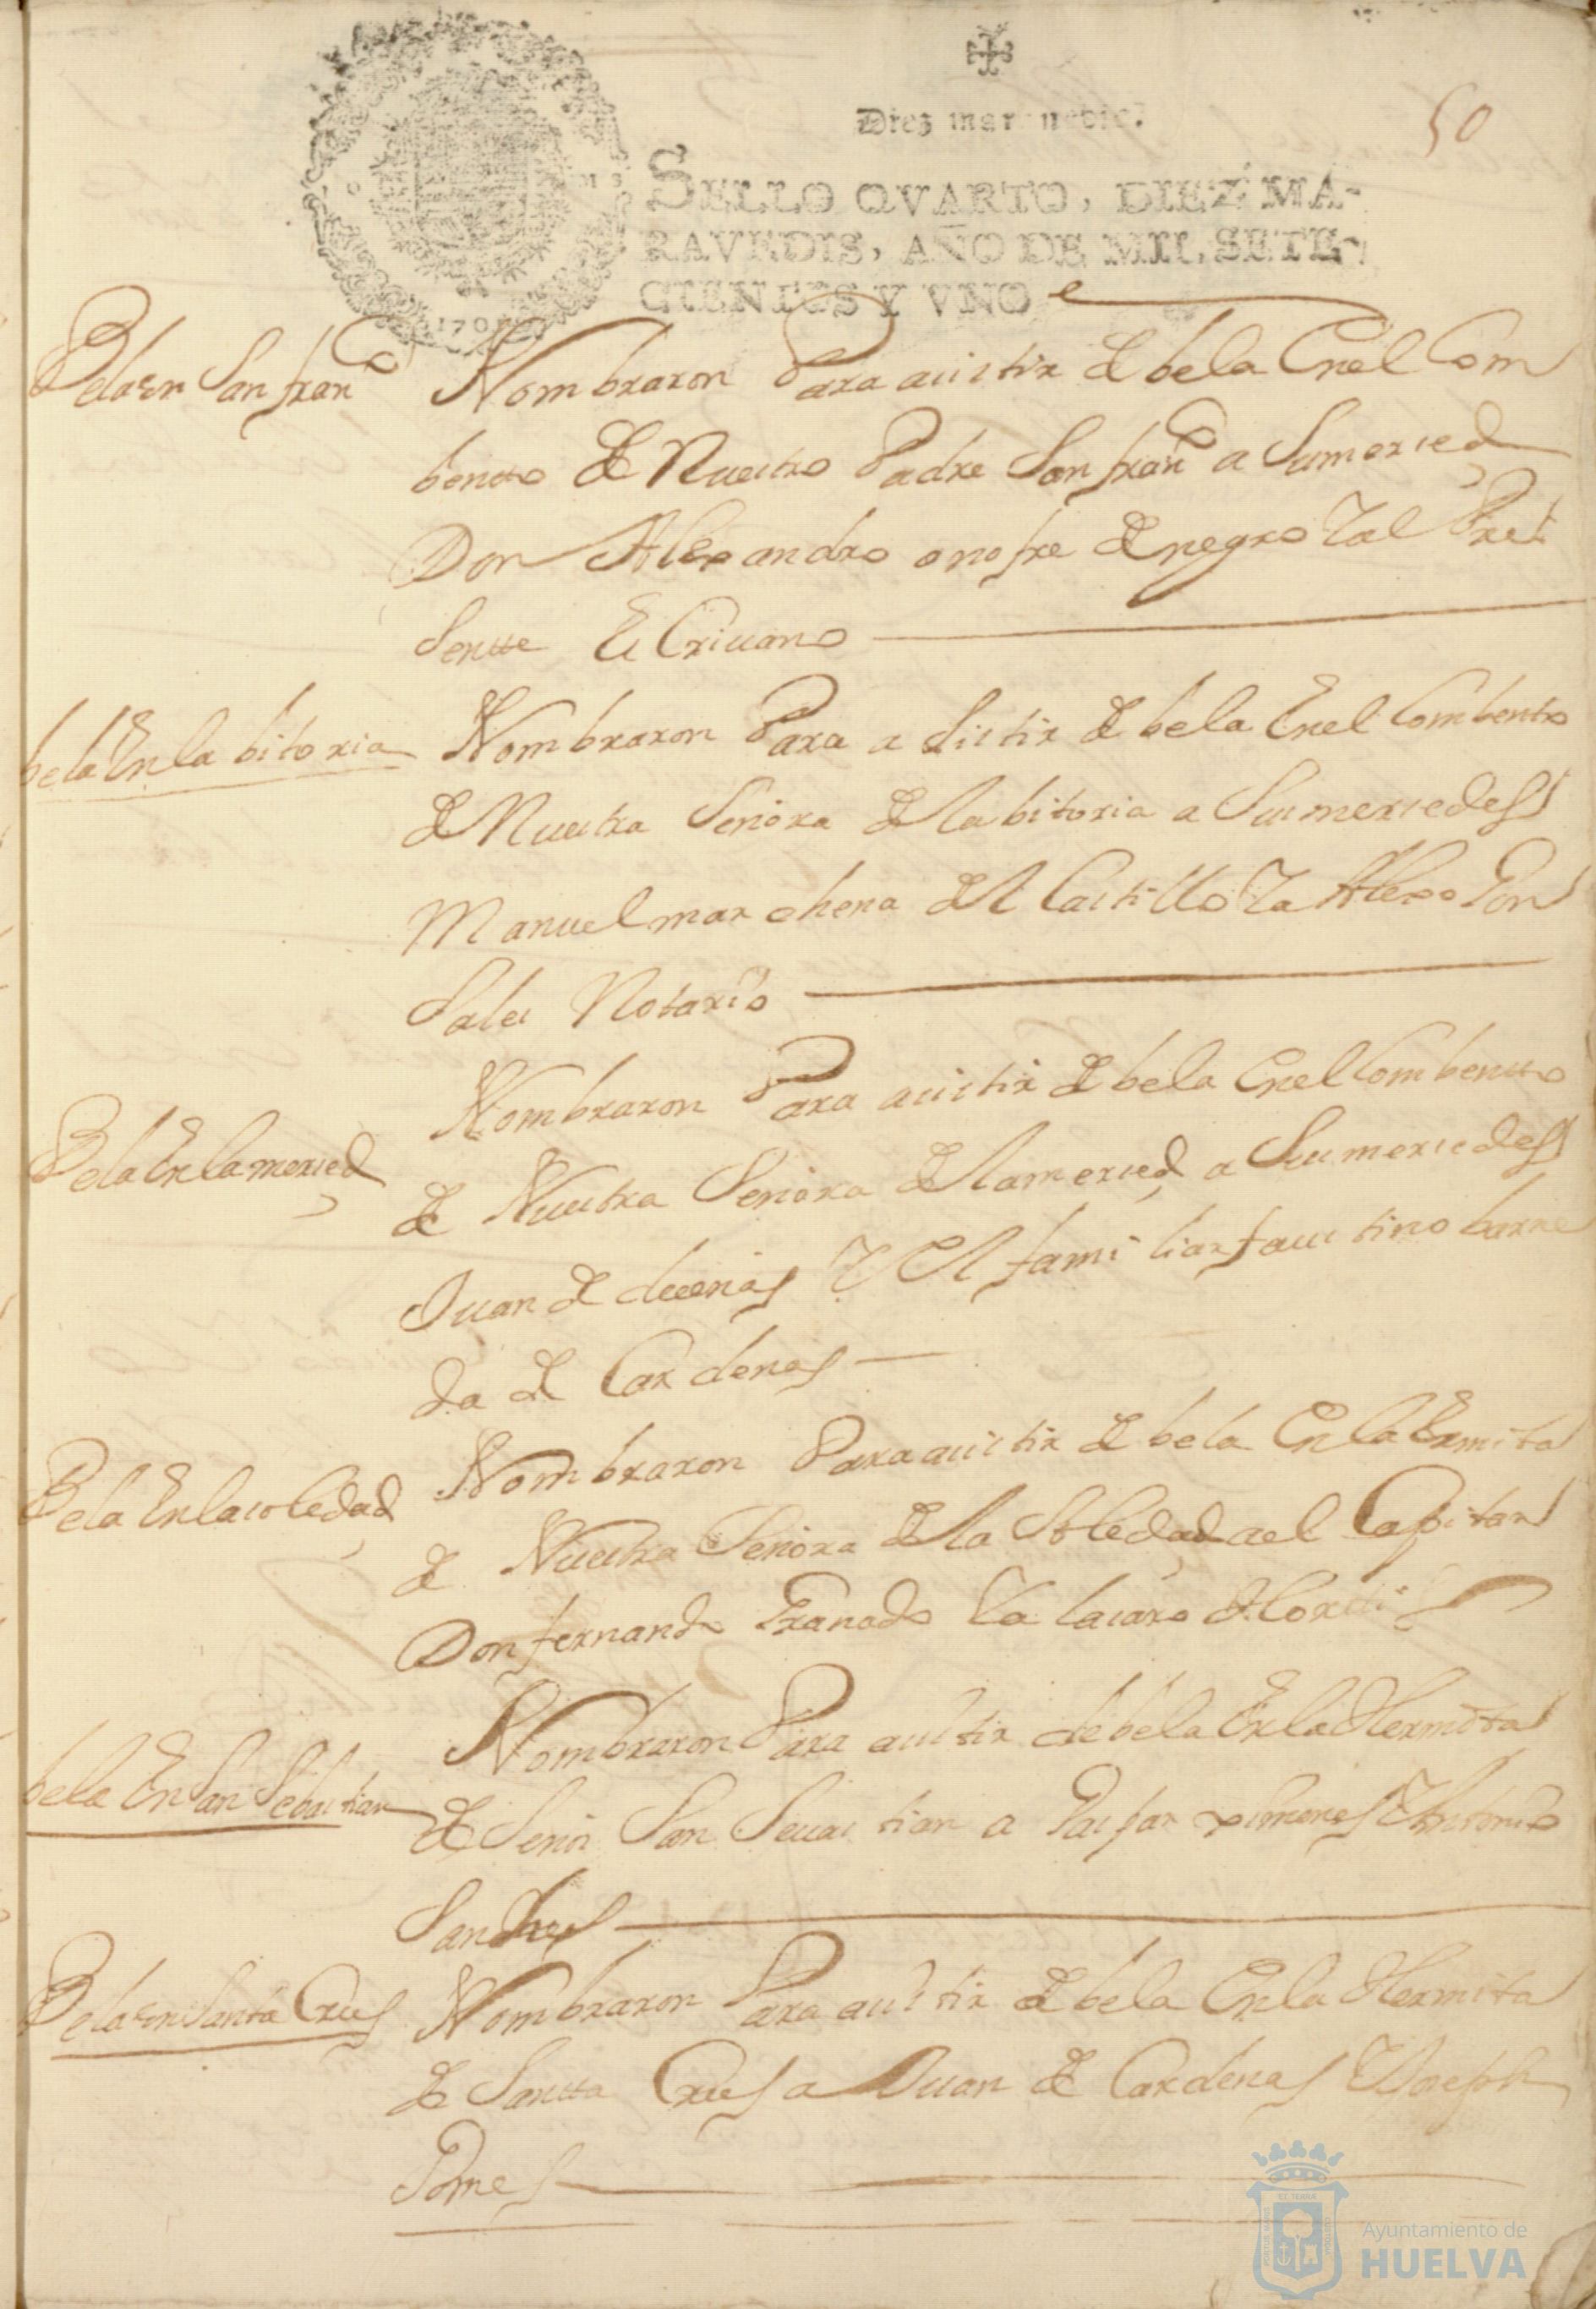 Diez maravedis.
50
SELLO QVARTO, DIEZ MA-
RAVEDIS, AÑO DE MIL, SETE-
CIENTES Y VNO
1701
Bela en San fran^co
Nombraron Para asistir de bela En el Com
bentto de Nuestro Padre San fran^co a Sumersed
Don Alexandro onofre de negro Y al Pres
Sentte Escriuano
bela En la bitoria
Nombraron Para asistir de bela En el Combento
de Nuestra Señora de la bitoria a Susmersedess
Manuel marchena del Castillo Y a Alexo Gon
Sales Notario
Bela En la mersed
Nombraron Para asistir de bela En el Combentto
de Nuestra Señora de la mersed a Susmersedess
Juan de Y El familiar faustino barre
da de Cardenas
Bela En la soledad
Nombraron Para asistir de bela En la Ermita
de Nuestra Señora de la Soledad a el Capitan
Don fernando Granado Y a Lasaro
bela En San Sebastian
Nombraron Para asistir de bela En la Hermita
de Señor San Seuastian a Gaspar ximenes Y Antonio
Sanches
Bela en Santa Crus
Nombraron Para asistir de bela En la Hermita
de Santta Crus a Juan de Cardenas Y Joseph
Gomes
Ayuntamiento de
HUELVA